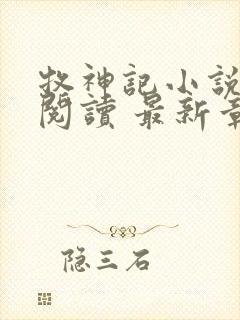 牧神記小說
閱讀 最新章
隐三石